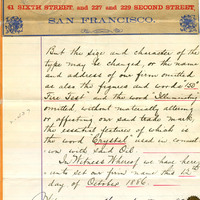 41 SIXTH STREET, and 227 and 229 SECOND STREET,
SAN FRANCISCO.
But the size and character of the
type may be changed, or the name
and address of our firm omitted
as also the figures and words "150°
Fire Test" and the word "Illuminating"
omitted, without materially altering
or affecting our said trade mark,
the essential features of which is
the word Crystal used in connec
ion with said Oil.
In Witness Whereof we have here
unto set our firm name this 12th
day of October 1886.